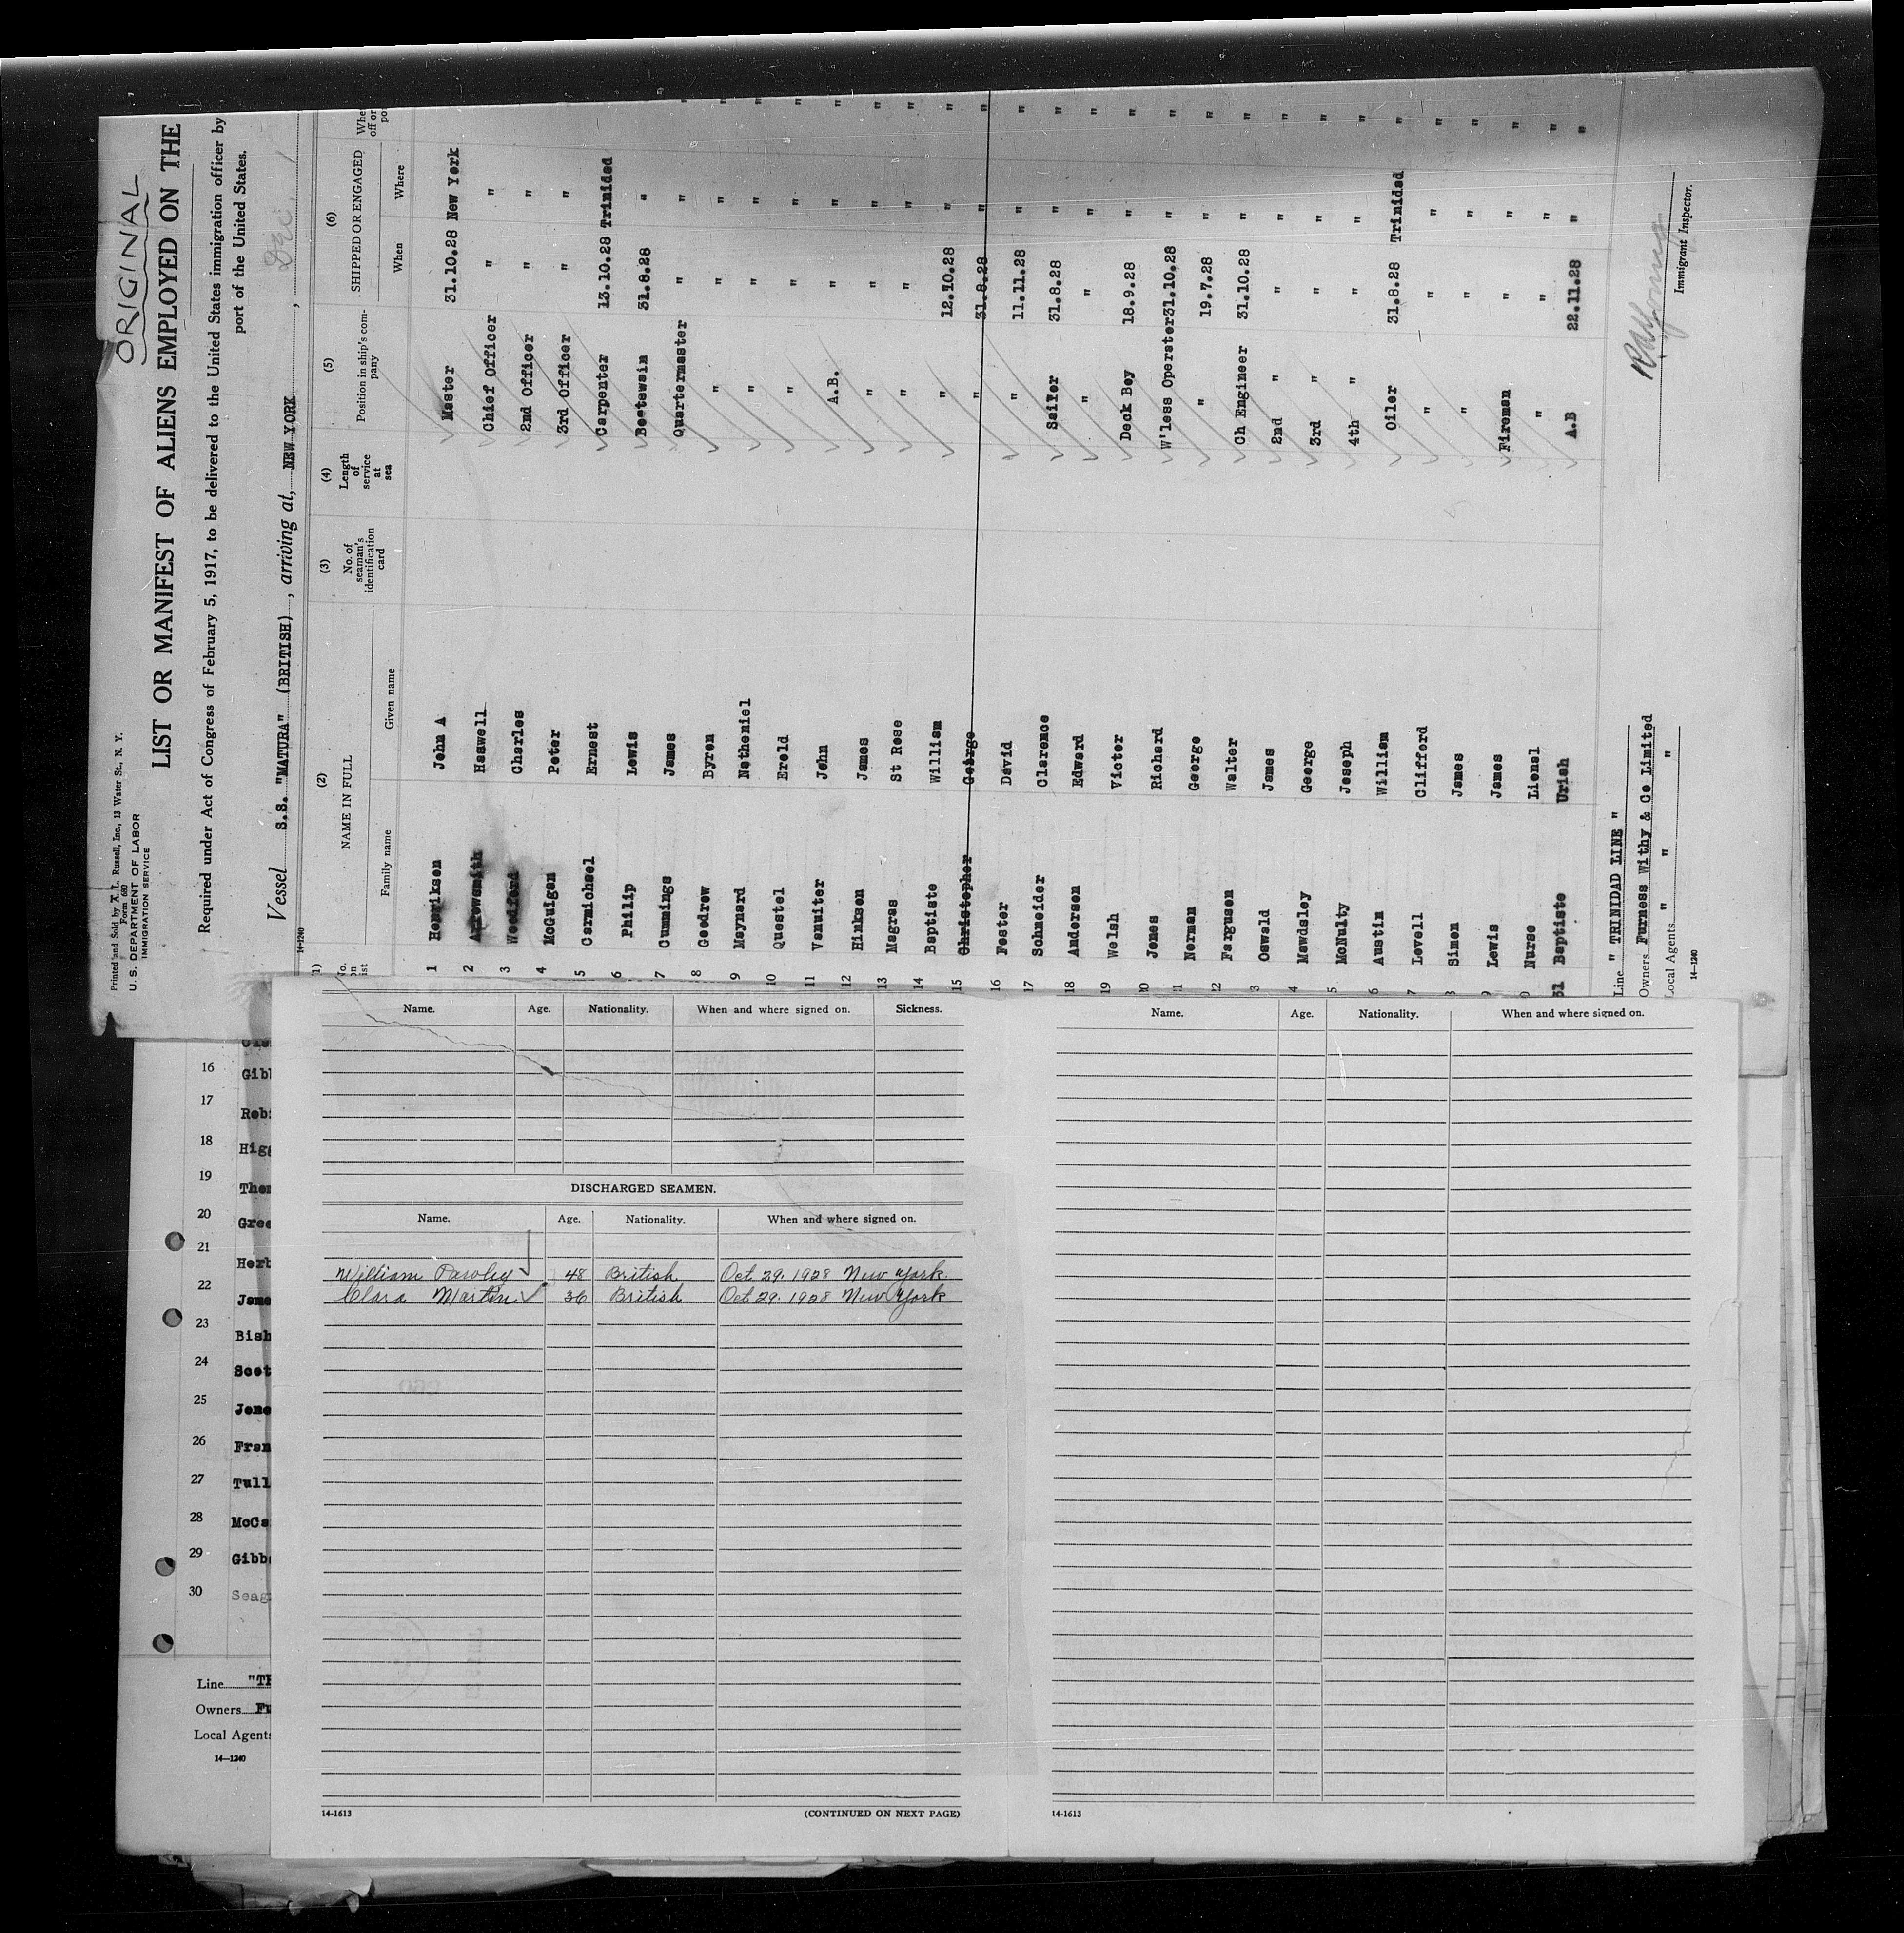 ORIGINAL
Printed and Sold by A.L. Russell, Inc., 13 Water St., N. Y.
Form 680
U. S. DEPARTMENT OF LABOR
IMMIGRATION SERVICE
LIST OR MANIFEST OF ALIENS EMPLOYED ON THE
Required under Act of Congress of February 5, 1917, to be delivered to the United States immigration officer by
port of the United States.
Vessel S.S. "MATURA" (BRITISH), arriving at, NEW YORK, Dec. 1
14-1240
(2) (3) (4) (5) (6)
NAME IN FULL No. of seaman's identification card Length of service at sea Position in ship's company SHIPPED OR ENGAGED
Family name Given name When Where
1 Henriksen John A Master 31.10.28 New York
2 Arrowsmith Haswell Chief Officer " "
3 Woodford Charles 2nd Officer " "
4 McGuigan Peter 3rd Officer " "
5 Carmichael Ernest Carpenter 13.10.28 Trinidad
6 Philip Lewis Boatswain 31.8.28 "
7 Cummings James Quartermaster " "
8 Goodrew Byron " " "
9 Maynard Nathaniel " " "
10 Questel Erold " " "
11 Vanuiter John A.B. " "
12 Hinksen James " " "
13 Magras St Rose " " "
14 Baptiste William " 12.10.28 "
15 Christopher George " 31.8.28 "
16 Foster David " 11.11.28 "
17 Schneider Clarence Sailor 31.8.28 "
18 Anderson Edward " " "
19 Welsh Victor Deck Boy 18.9.28 "
20 Jones Richard W'less Operator 31.10.28 "
1 Norman George " 19.7.28 "
2 Ferguson Walter Ch Engineer 31.10.28 "
3 Oswald James 2nd " " "
4 Mawdsley George 3rd " " "
5 McNulty Joseph 4th " " "
6 Austin William Oiler 31.8.28 Trinidad
7 Lovell Clifford " " "
8 Simon James " " "
9 Lewis James Fireman " "
0 Nurse Lionel " " "
31 Baptiste Uriah A.B 22.11.28 "
Line " TRINIDAD LINE "
Owners Furness Withy & Co Limited
Local Agents " " "
14-1240
Immigrant Inspector.
16 Gibb
17 Robi
18 Higg
19 Thom
20 Gree
21 Herb
22 Jame
23 Bish
24 Scot
25 Jone
26 Fran
27 Tull
28 McCa
29 Gibbs
30 Seag
Line "TR
Owners Fu
Local Agents
14—1240
Name. Age. Nationality. When and where signed on. Sickness.
DISCHARGED SEAMEN.
Name. Age. Nationality. When and where signed on.
William Pawley 48 British Oct 29. 1928 New York.
Clara Martin 36 British Oct 29. 1928 New York
14-1613 (CONTINUED ON NEXT PAGE)
Name. Age. Nationality. When and where signed on.
14-1613